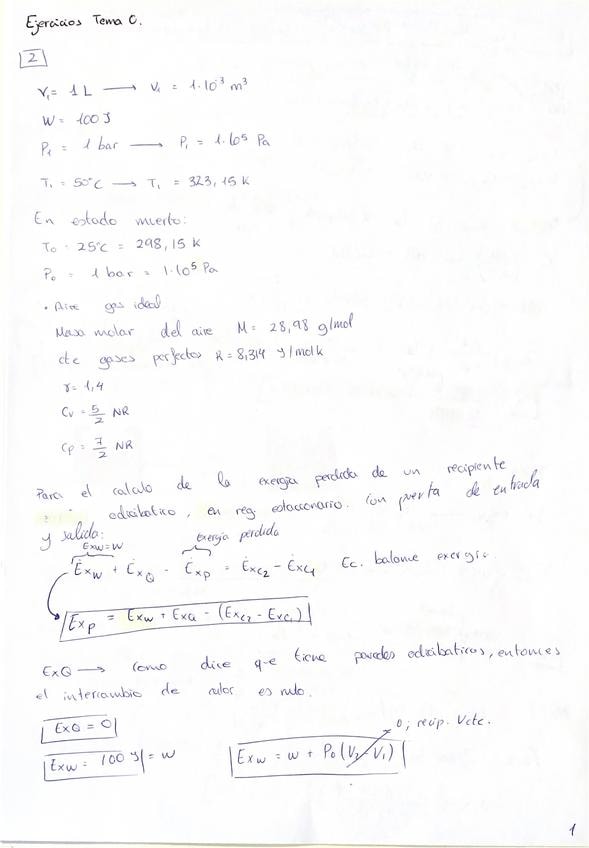 Ejercicios Tema 0.
2
V₁ = 1 L → V₁ = 1·10⁻³ m³
W = 100 J
P₁ = 1 bar → P₁ = 1·10⁵ Pa
T₁ = 50°C → T₁ = 323,15 K
En estado muerto:
T₀ = 25°C = 298,15 K
P₀ = 1 bar = 1·10⁵ Pa
· Aire gas ideal
Masa molar del aire M = 28,98 g/mol
cte gases perfectos R = 8,314 J/molK
γ = 1,4
Cv = 5/2 NR
Cp = 7/2 NR
Para el calculo de la exergia perdida de un recipiente
adiabatico, en reg estacionario. con puerta de entrada
y salida:
Exw = W exergia perdida
Ėxw + Ėx_Q - Ėx_P = Ėxc₂ - Ėxc₁ Ec. balance exergía.
Ex_P = Exw + ExQ - (Exc₂ - Exc₁)
ExQ → como dice que tiene paredes adiabaticas, entonces
el intercambio de calor es nulo.
0; recip. Vcte.
ExQ = 0
Exw = 100 J = W
Exw = W + P₀(V₂ - V₁)
1